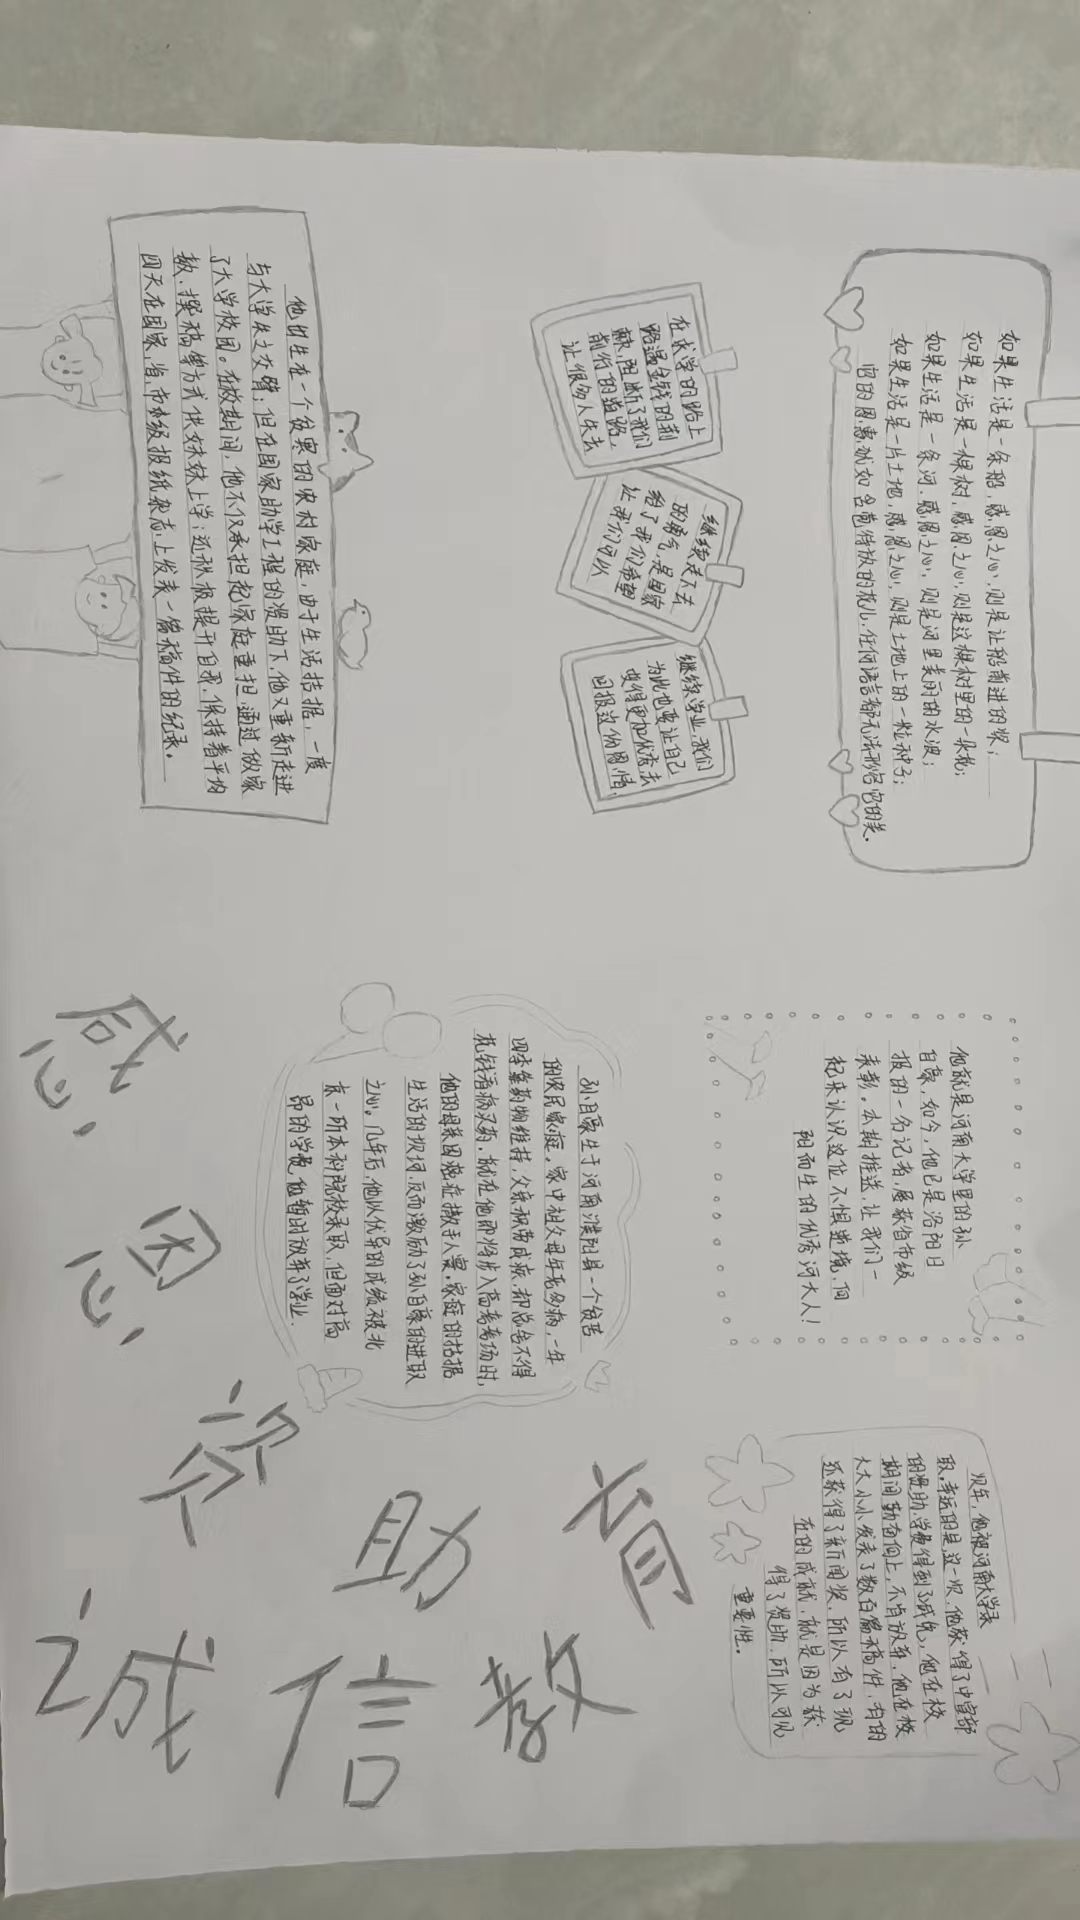 如果生活是一条船，感恩之心，则是让船前进的桨；
如果生活是一棵树，感恩之心，则是这棵树里的一张花；
如果生活是一条河，感恩之心，则是河里美丽的水波；
如果生活是一片土地，感恩之心，则是土地上的一粒种子；
它的恩惠就如含苞待放的花儿，任何语言都无法形容它的美。
在求学的路上
路遇金钱的荆
棘，阻断了我们
前行的道路，
让很多人失去
继续走下去
的勇气，是国家
给了我们希望
让我们可以
继续学业，我们
为此也要让自己
变得更加优秀去
回报这份恩情。
他出生在一个贫寒的农村家庭，由于生活拮据，一度
与大学失之交臂；但在国家助学工程的资助下，他又重新走进
了大学校园。在校期间，他不仅承担起家庭重担，通过做家
教、撰稿等方式供妹妹上学；还积极提升自我，保持着平均
四天在国家，省，市级报纸杂志上发表一篇稿件的纪录。
他就是河南大学里的孙
自豪，如今，他已是洛阳日
报的一名记者，屡获省市级
表彰。本期推送，让我们一
起来认识这位不惧逆境，向
阳而生的优秀河大人！
孙自豪生于河南濮阳县一个贫苦
的农民家庭。家中祖父母年老多病，一年
四季靠药物维持，父亲积劳成疾，却总舍不得
花钱看病买药，就在他即将步入高考考场时，
他的母亲因癌症撒手人寰。家庭的拮据
生活的坎坷，反而激励了孙自豪的进取
之心。几年后，他以优异的成绩被北
京一所本科院校录取，但面对高
昂的学费，他暂时放弃了学业.
次年，他被河南大学录
取。幸运的是，这一次，他获得了中宣部
的资助，学费得到了减免，他在校
期间勤奋向上，不肯放弃，他在校
大大小小发表了数百篇稿件，有的
还获得了新闻奖，所以有了现
在的成就，就是因为获
得了资助，所以可见
重要性。
感恩资助
诚信教育